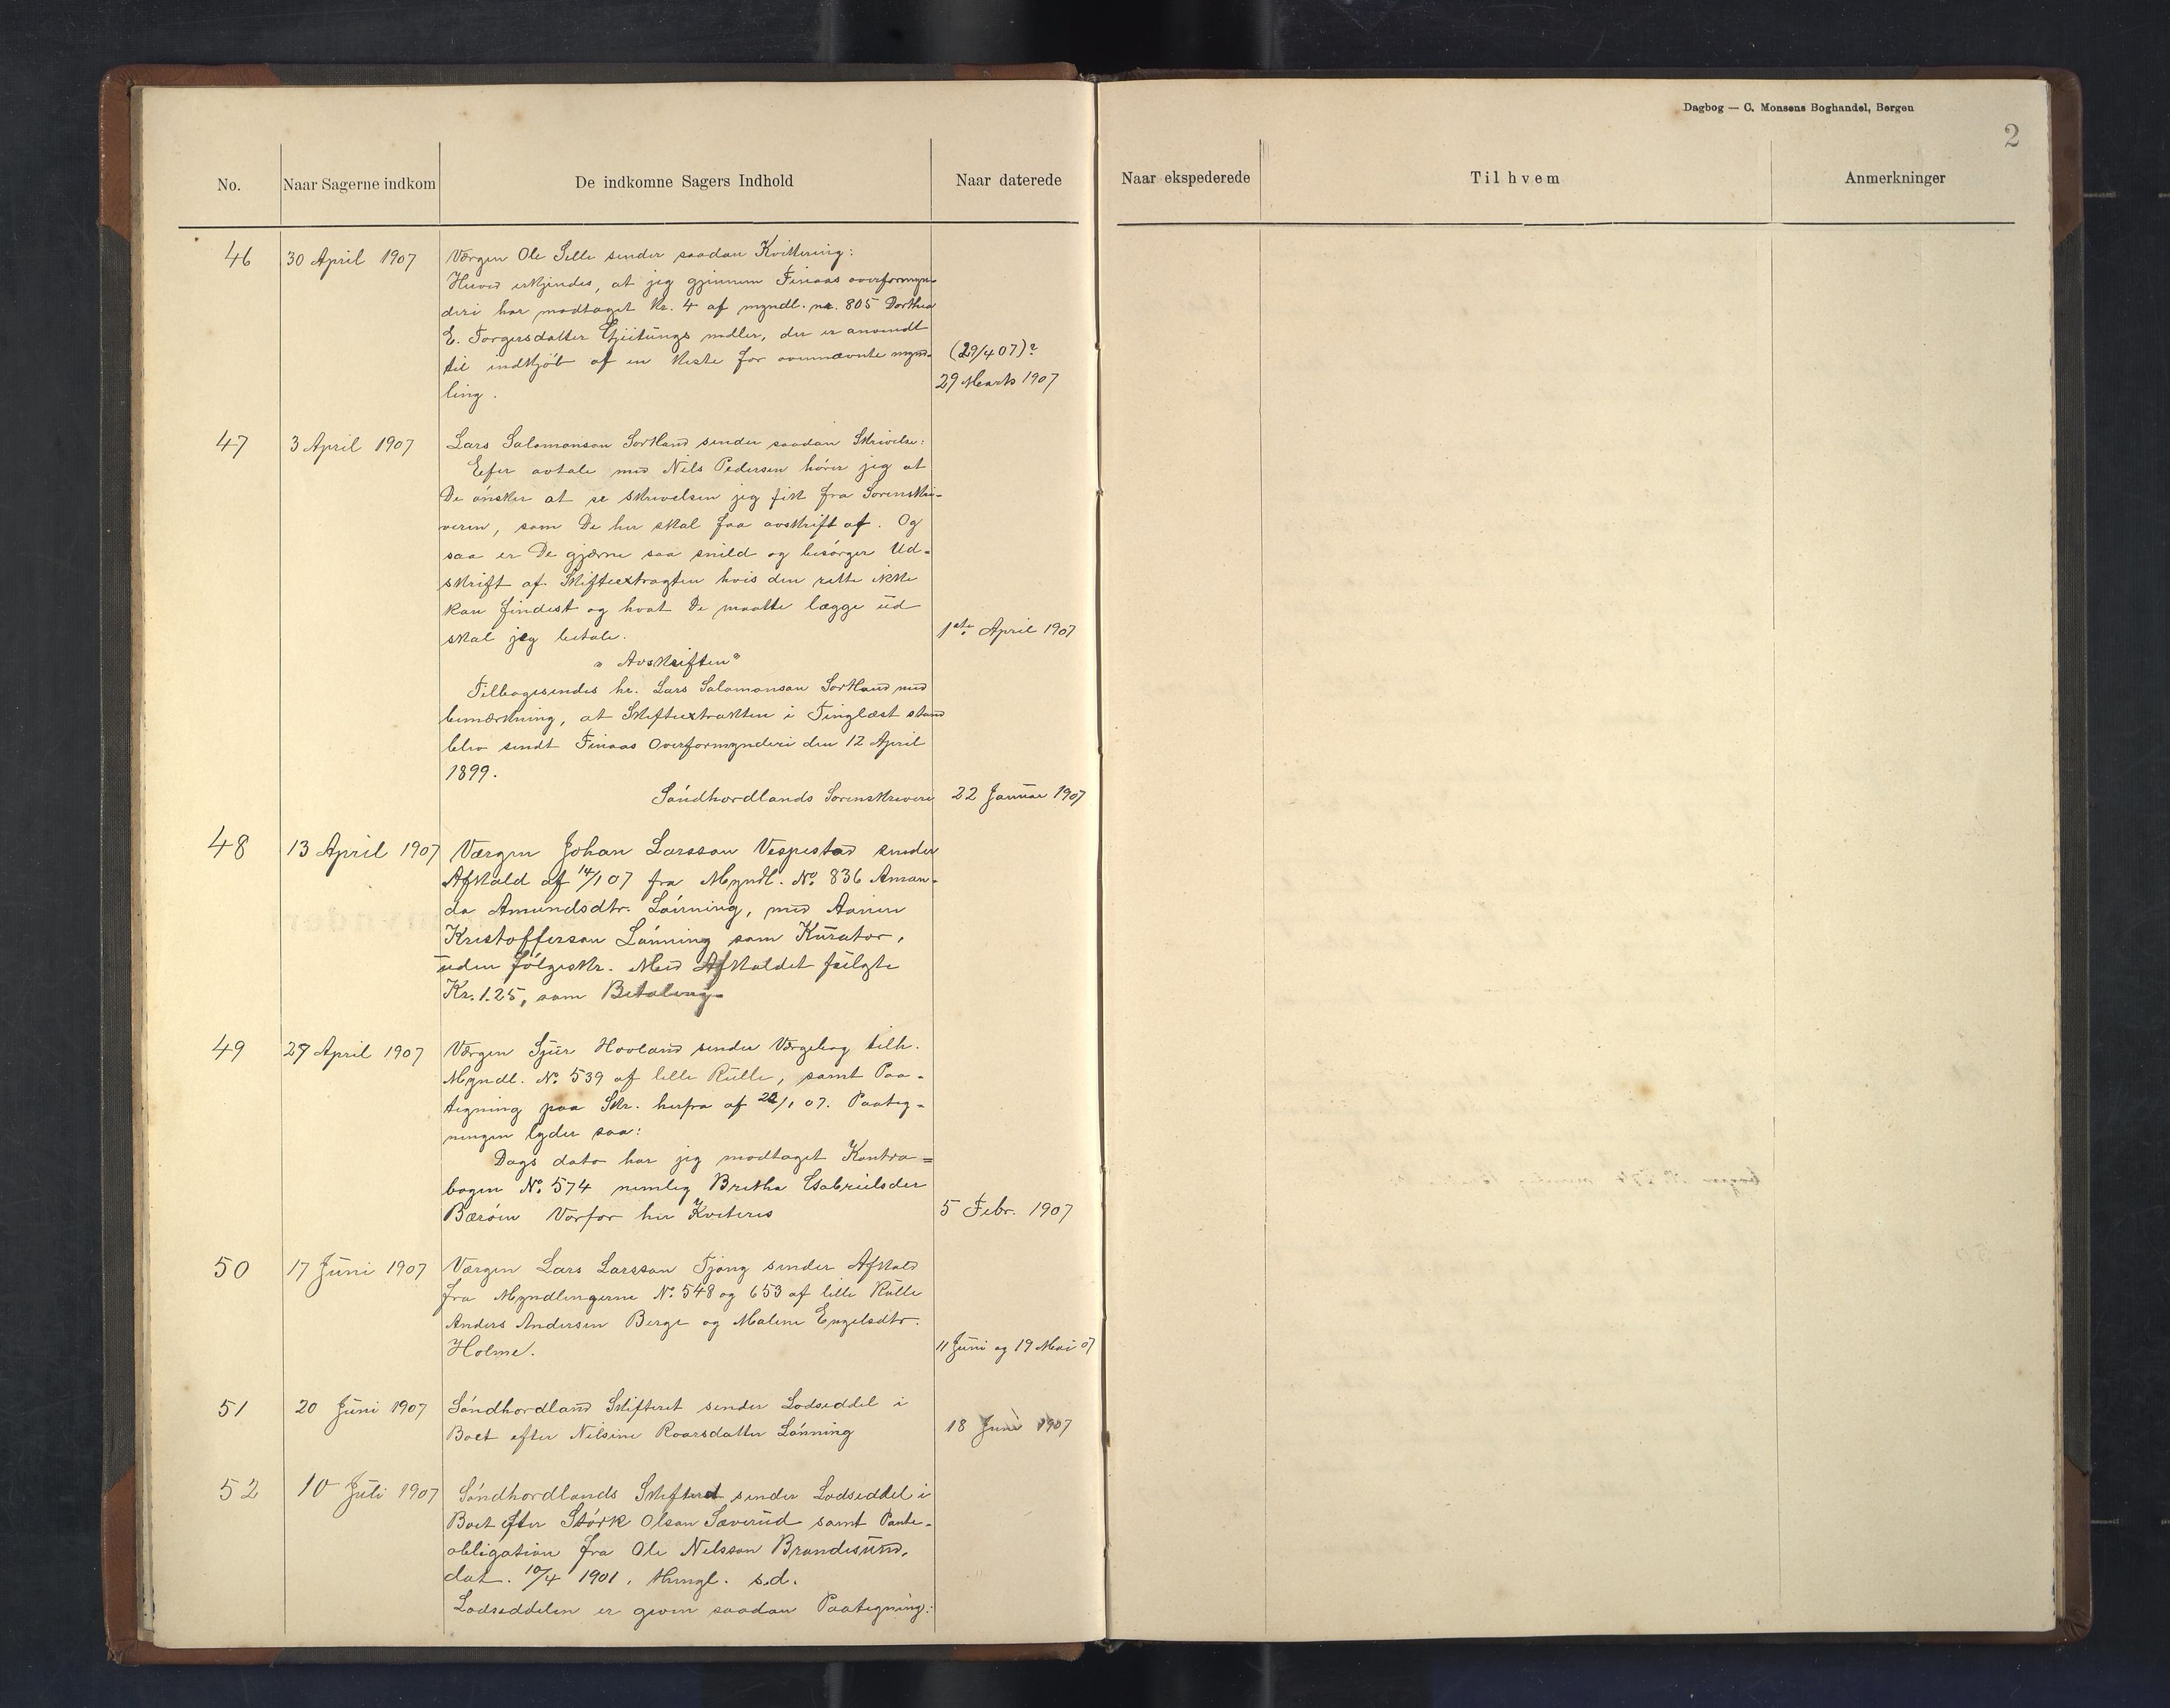 Dagbog — C. Monsens Boghandel, Bergen
2
No. Naar Sagerne indkom De indkomne Sagers Indhold Naar daterede Naar ekspederede Til hvem Anmerkninger
46 30 April 1907 Værgen Ole Selle sender saadan Kvittering:
Herved erkjendes, at jeg gjennem Finaas overformyn-
deri har modtaget Kr. 4 af myndl. nr. 805 Dorthea
E. Torgersdatter midler, der er anvendt
til indkjøb af en Kiste for ovennævnte mynd- (29/4 07)?
ling. 29 Marts 1907
47 3 April 1907 Lars Salomonson Sortland sender saadan Skrivelse:
Eefer avtale med Nils Pedersen hører jeg at
De ønsker at se skrivelsen jeg fik fra Sorenskri-
veren, som De her skal faa avskrift af. Og
saa er De gjærne saa snild og besørger Ud-
skrift af Skifteextragten hvis den rette ikke
kan findest og hvat De maatte lægge ud
skal jeg betale. 1ste April 1907
"Avskriften"
Tilbagesendes hr. Lars Salomonson Sortland med
bemærkning, at Skifteextrakten i Tinglæst stand
blev sendt Finaas Overformynderi den 12 April
1899.
Søndhordlands Sorenskriveri 22 Januar 1907
48 13 April 1907 Værgen Johan Larsson Vespestad sender
Afkald af 14/1 07 fra Myndl. No. 836 Aman-
da Amundsdtr. Lønning, med
Kristofferson Lønning som Kurator,
uden Følgeskr. Med Afkaldet fulgte
Kr. 1.25, som Betaling.
49 27 April 1907 Værgen Sjur Hovland sender Værgebog tilh.
Myndl. No. 539 af lille Rulle, samt Paa-
tegning paa Skr. herfra af 22/1 07. Paateg-
ningen lyder saa:
Dags dato har jeg modtaget Kontra=
bogen No. 574 nemlig Bretha Gabrielsder
Bærøen Vorfor her Kviteres 5 Febr. 1907
50 17 Juni 1907 Værgen Lars Larsson Tjong sender Afkald
fra Myndlingerne No. 548 og 653 af lille Rulle
Anders Andersen Berge og Malene Engelsdtr.
Holme. 11 Juni og 19 Mai 07
51 20 Juni 1907 Søndhordland Skifteret sender Lodseddel i
Boet efter Nilsine Roarsdatter Lønning 18 Juni 1907
52 10 Juli 1907 Søndhordlands Skifteret sender Lodseddel i
Boet efter Størk Olson Sæverud samt Pante-
obligation fra Ole Nelsson Brandesund,
dat. 10/4 1901, s.d.
Lodseddelen er given saadan Paategning: